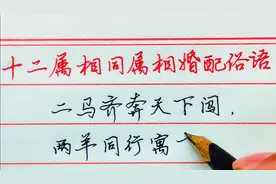 十二属相同属相婚配俗语
二马齐奔天下闯，
两羊同行寓